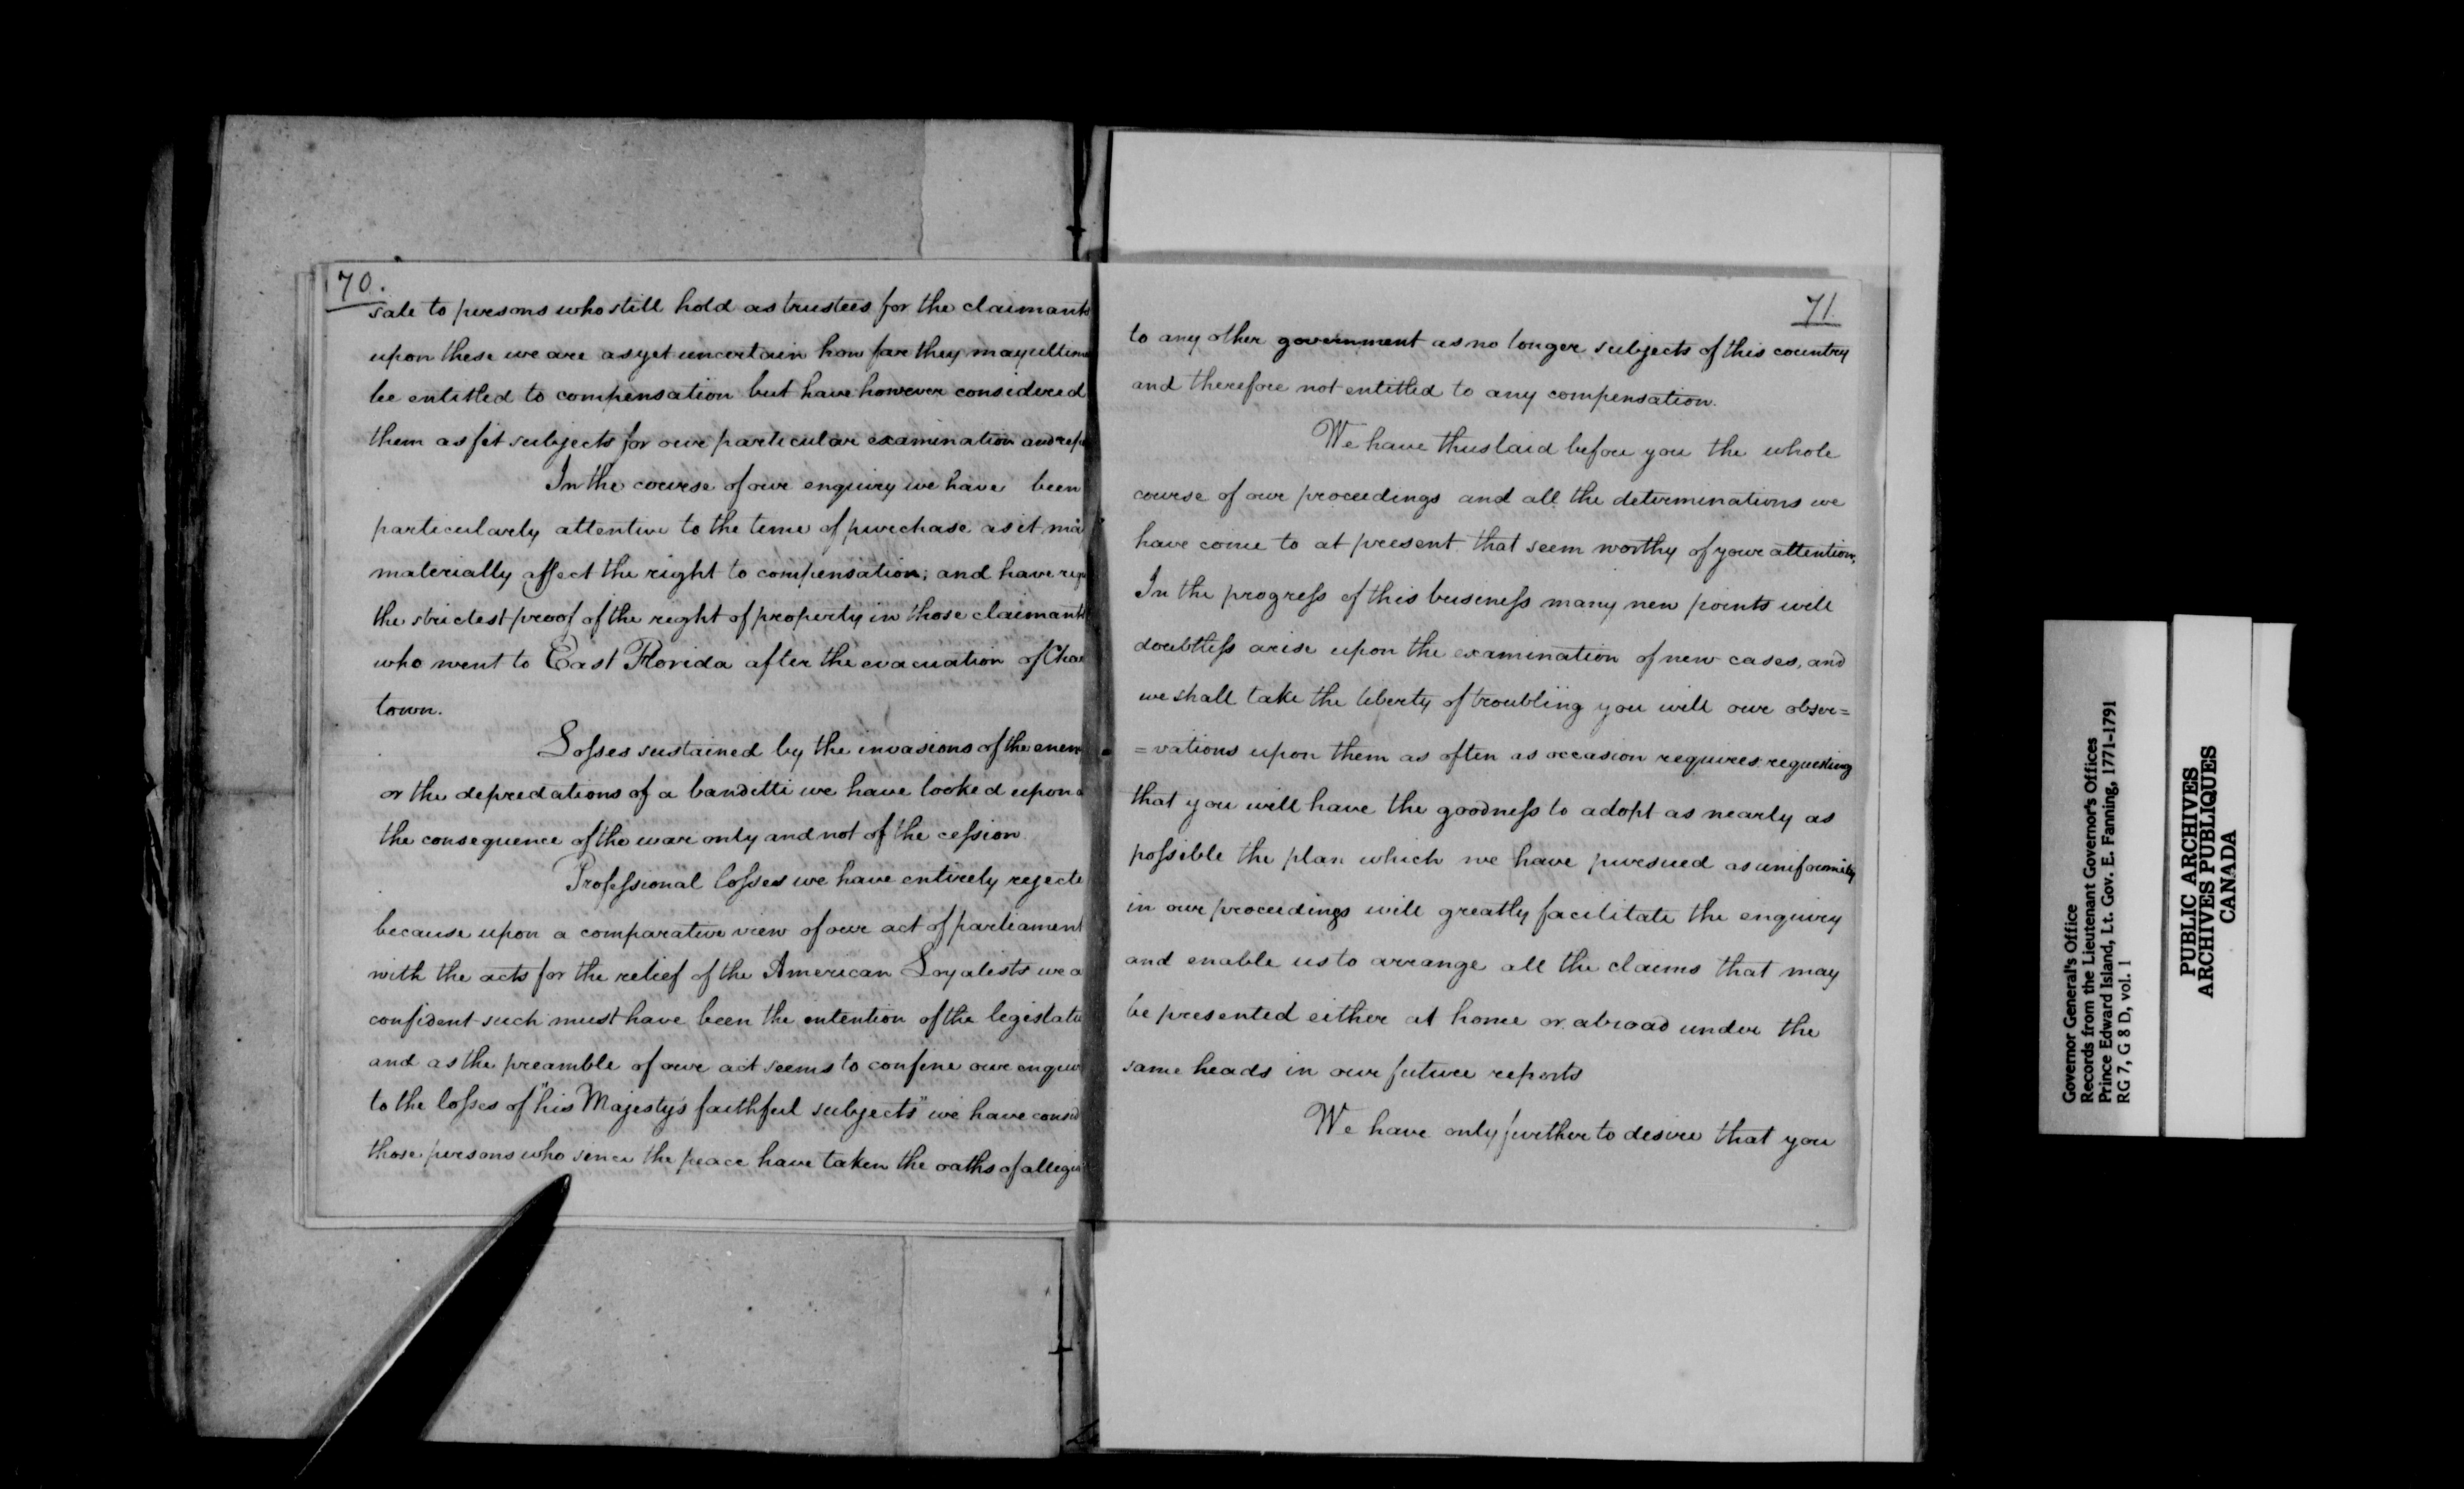 70.
sale to persons who still hold as trustees for the claimants
upon these we are as yet uncertain how far they may ultima
be entitled to compensation but have however considered
them as fit subjects for our particular examination and rep
In the course of our enquiry we have been
particularly attentive to the time of purchase as it ma
materially affect the right to compensation; and have req
the strictest proof of the right of property in those claimants
who went to East Florida after the evacuation of Char
town.
Losses sustained by the invasions of the enem
or the depredations of a banditti we have looked upon a
the consequence of the war only and not of the cession
Professional losses we have entirely rejecte
because upon a comparative view of our act of parliament
with the acts for the relief of the American Loyalists we a
confident such must have been the intention of the legislatu
and as the preamble of our act seems to confine our enqui
to the losses of "his Majesty's faithful subjects" we have consid
those persons who since the peace have taken the oaths of allegia
71.
to any other government as no longer subjects of this country
and therefore not entitled to any compensation.
We have thus laid before you the whole
course of our proceedings and all the determinations we
have come to at present that seem worthy of your attention,
In the progress of this business many new points will
doubtless arise upon the examination of new cases, and
we shall take the liberty of troubling you will our obser=
=vations upon them as often as occasion requires requesting
that you will have the goodness to adopt as nearly as
possible the plan which we have pursued as uniformity
in our proceedings will greatly facilitate the enquiry
and enable us to arrange all the claims that may
be presented either at home or abroad under the
same heads in our future reports
We have only further to desire that you
Governor General's Office
Records from the Lieutenant Governor's Offices
Prince Edward Island, Lt. Gov. E. Fanning, 1771-1791
RG 7, G 8 D, vol. 1
PUBLIC ARCHIVES
ARCHIVES PUBLIQUES
CANADA